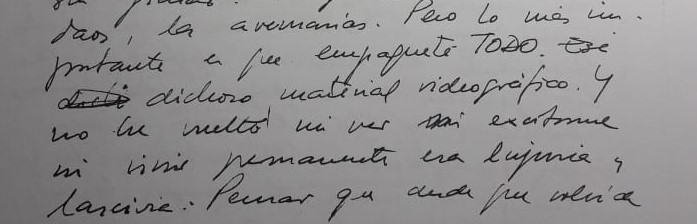 daos, las avemarías. Pero lo más im-
portante es que empaqueté TODO. Ese
dichoso material videográfico. Y
no he vuelto ni ver ni excitarme
ni vivir permanente esa lujuria y
lascivia. Pensar que desde que volví de